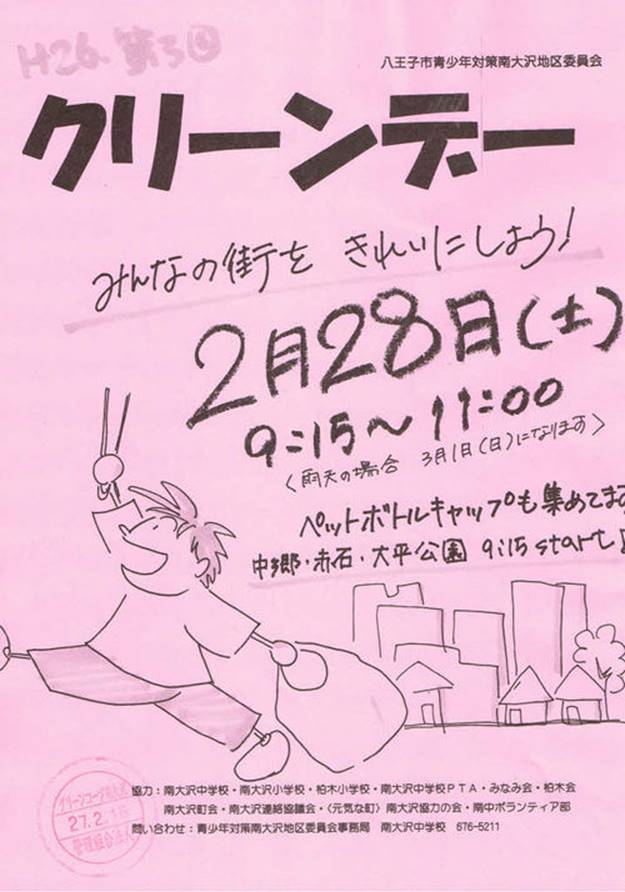 H26. 第3回
八王子市青少年対策南大沢地区委員会
クリーンデー
みんなの街を きれいにしよう!
2月28日(土)
9:15~11:00
〈雨天の場合 3月1日(日)になります〉
ペットボトルキャップも集めてます
中郷・赤石・大平公園 9:15 start
協力:南大沢中学校・南大沢小学校・柏木小学校・南大沢中学校PTA・みなみ会・柏木会
南大沢町会・南大沢連絡協議会・〈元気な町〉南大沢協力の会・南中ボランティア部
問い合わせ:青少年対策南大沢地区委員会事務局 南大沢中学校 676-5211
グリーンコープ
27.2.16
管理組合法人